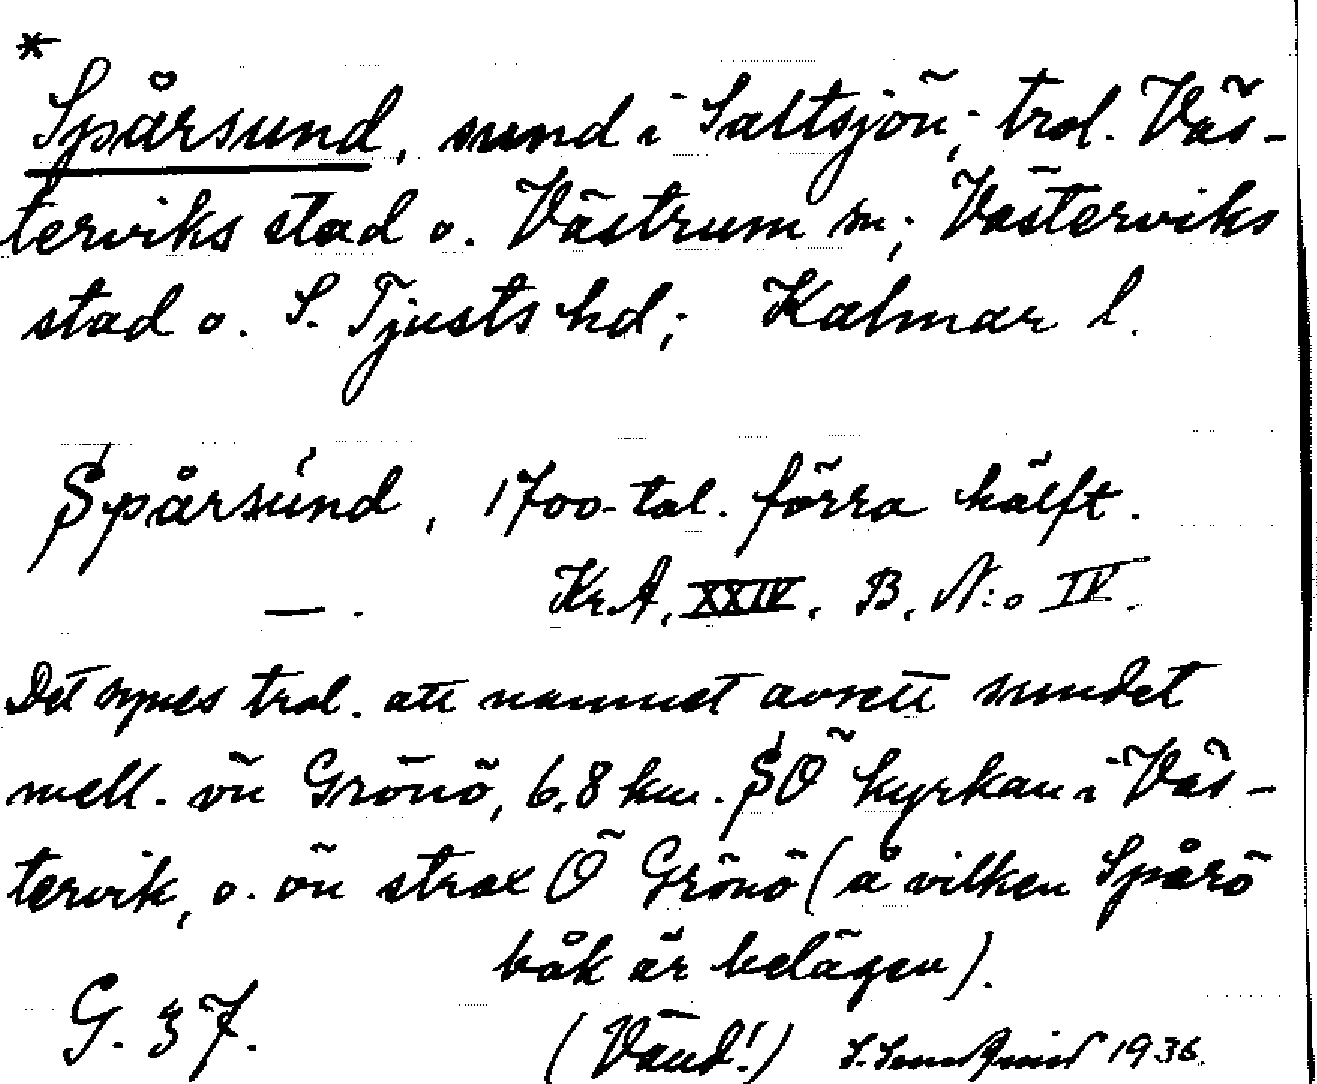 *
Spårsund, sund i Saltsjön; trol. Väs-
terviks stad o. Västrum sn; Västerviks
stad o. S. Tjusts hd; Kalmar l.
Spårsund, 1700-tal. förra hälft.
— . Kr.A. XXIV. B. N:o IV.
Det synes trol. att namnet avsett sundet
mell. ön Grönö, 6,8 km. SÖ kyrkan i Väs-
tervik, o. ön strax Ö Grönö (å vilken Spårö
båk är belägen).
G. 37.
(Vänd!) 1936